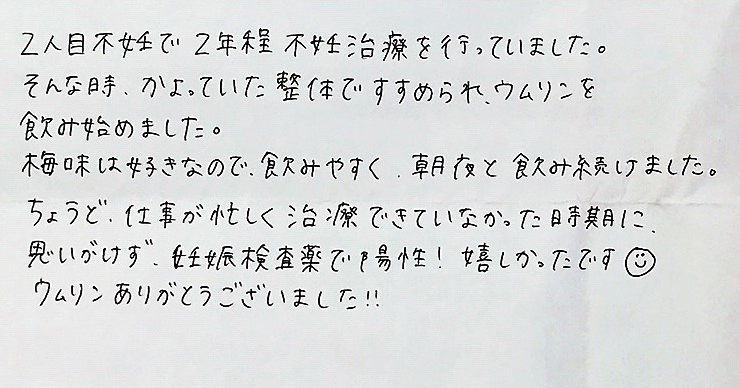 2人目不妊で2年程不妊治療を行っていました。
そんな時、かよっていた整体ですすめられ、ウムリンを
飲み始めました。
梅味は好きなので、飲みやすく、朝夜と飲み続けました。
ちょうど、仕事が忙しく治療できていなかった時期に、
思いがけず、妊娠検査薬で陽性！嬉しかったです☺
ウムリンありがとうございました!!